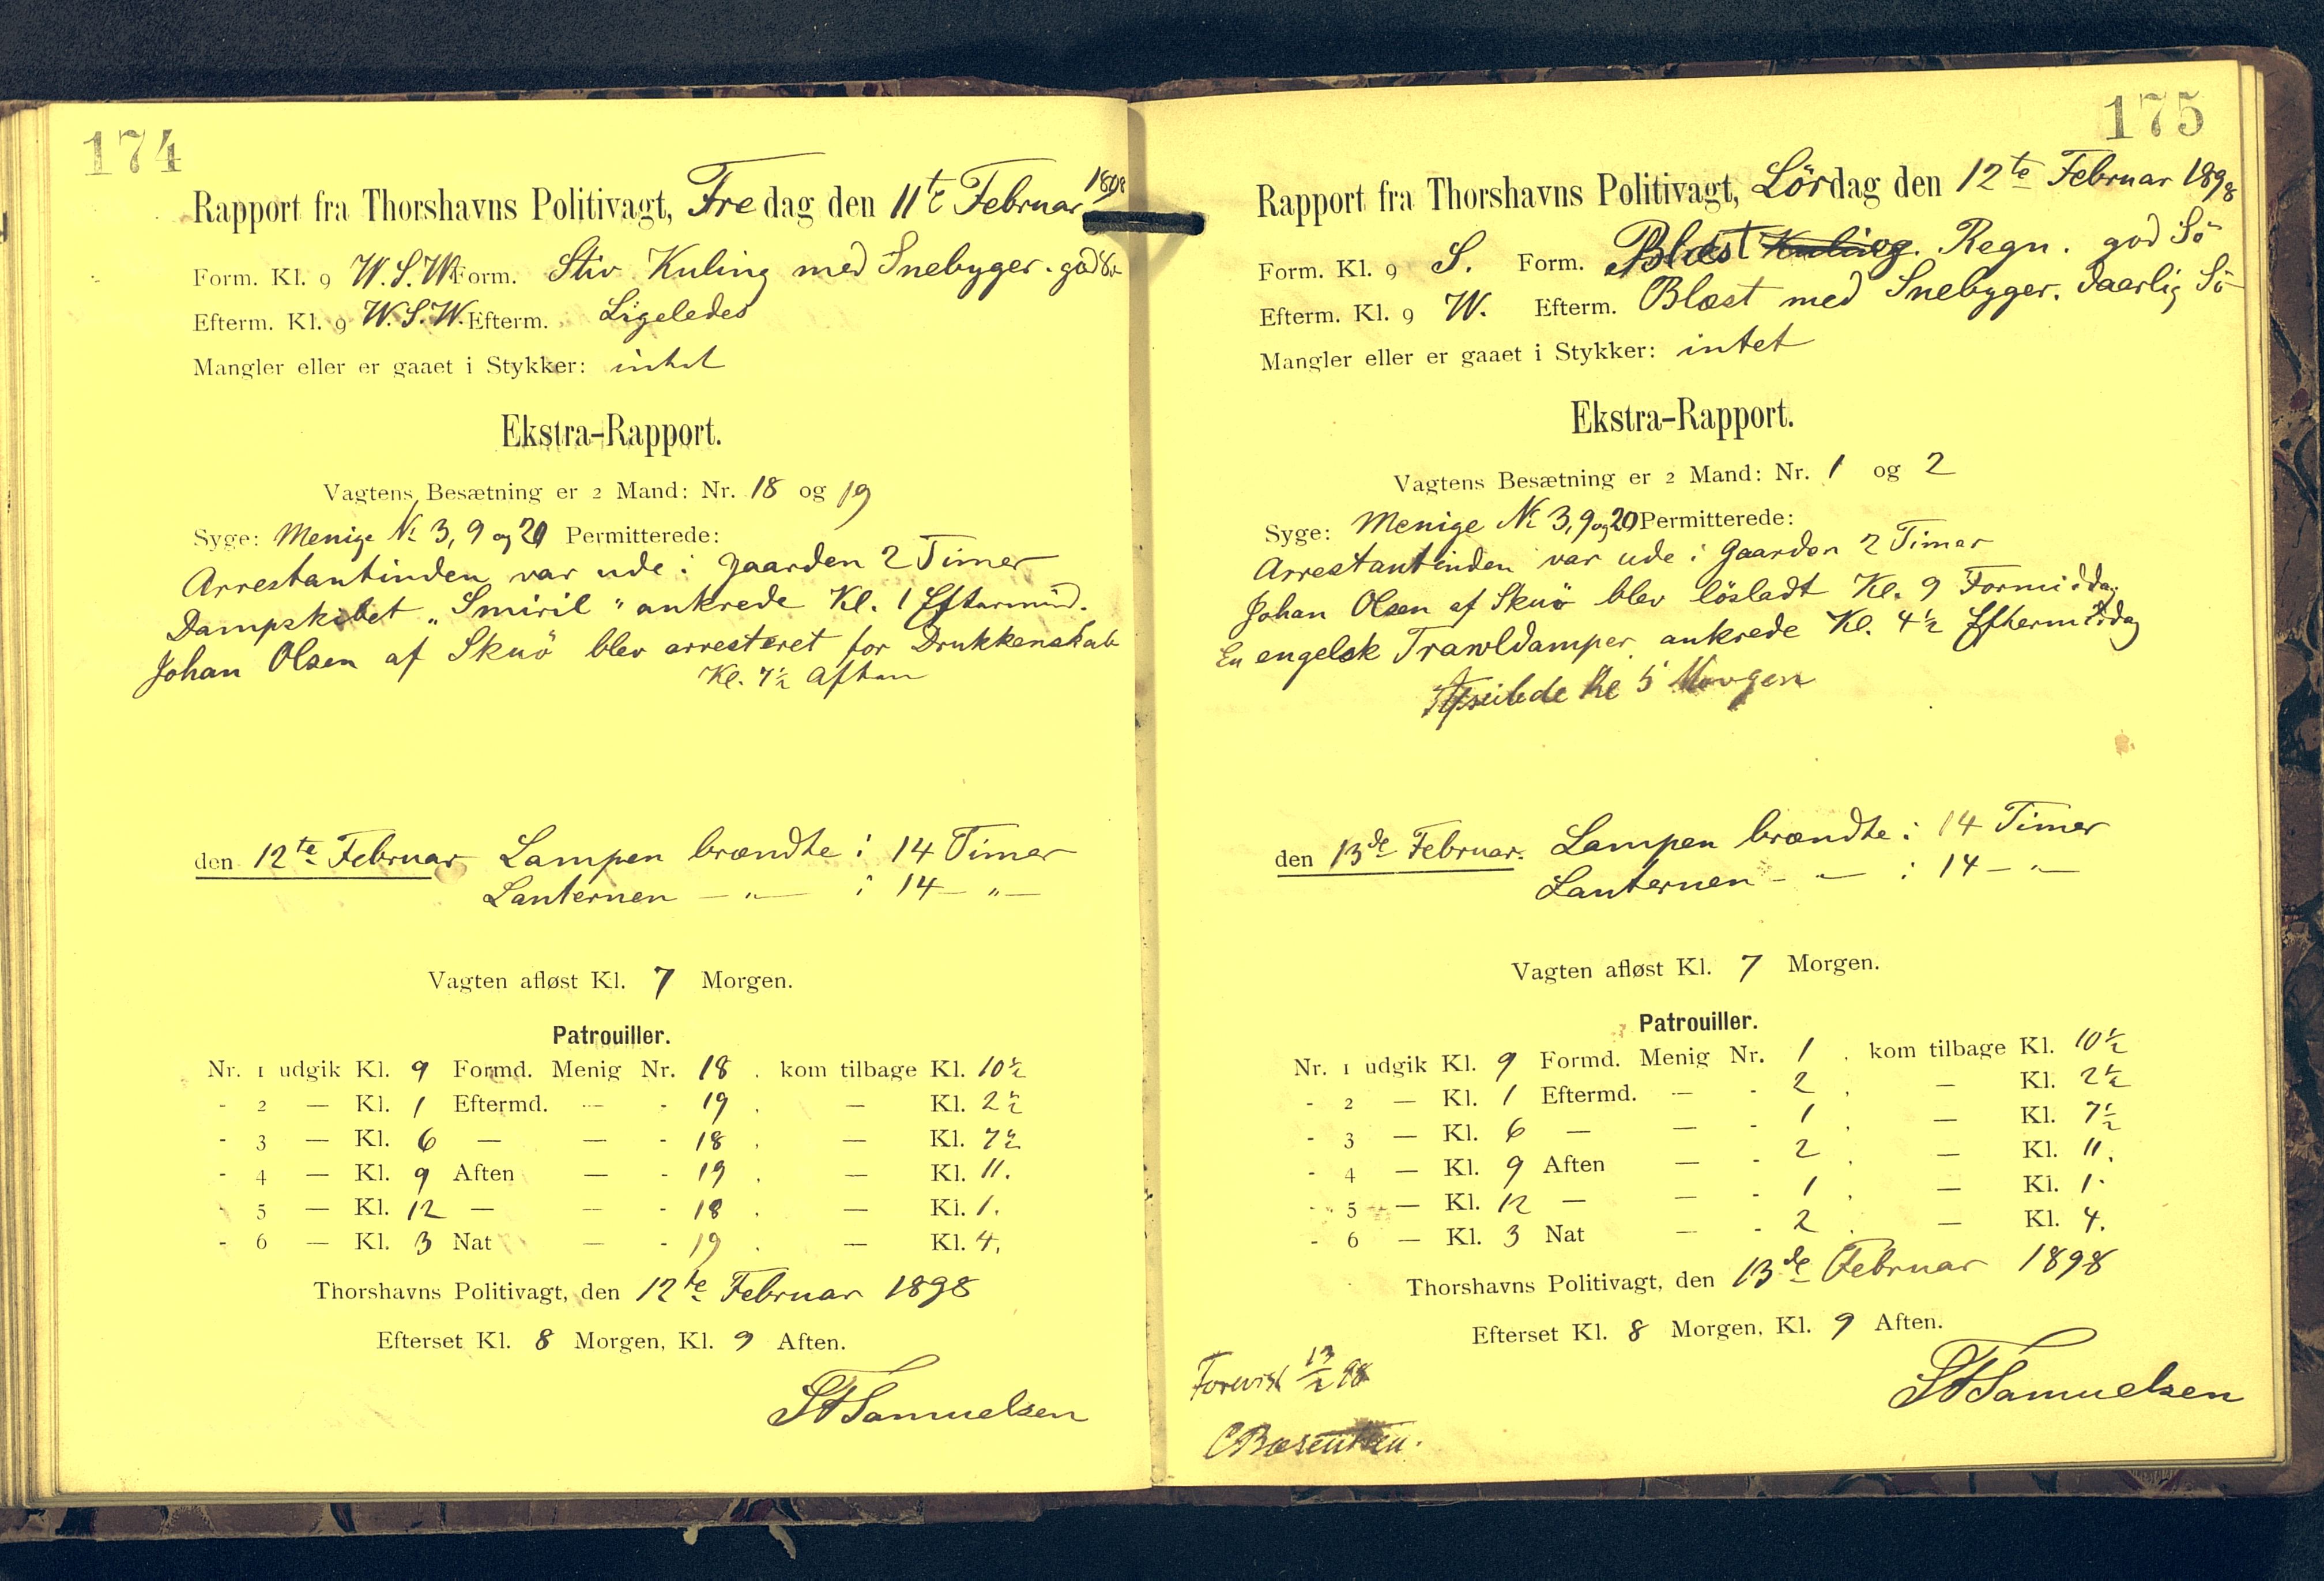 174
Rapport fra Thorshavns Politivagt, Fredag den 11te Februar 1898
Form. Kl. 9 W.S.W. Form. Stiv Kuling med Snebyger. god Sö
Efterm. Kl. 9 W.S.W. Efterm. Ligeledes
Mangler eller er gaaet i Stykker: intet
Ekstra-Rapport.
Vagtens Besætning er 2 Mand: Nr. 18 og 19
Syge: Menige No 3, 9 og 20 Permitterede:
Arrestantinden var ude i Gaarden 2 Timer
Dampskibet „Smiril" ankrede Kl. 1 Eftermid.
Johan Olsen af Skuö blev arresteret for Drukkenskab
Kl. 7½ Aften
den 12te Februar Lampen brændte i 14 Timer
Lanternen — „ — i 14 — „ —
Vagten afløst Kl. 7 Morgen.
Patrouiller.
Nr. 1 udgik Kl. 9 Formd. Menig Nr. 18 . kom tilbage Kl. 10½
- 2 — Kl. 1 Eftermd. — - 19 . — Kl. 2½
- 3 — Kl. 6 — — - 18 . — Kl. 7½
- 4 — Kl. 9 Aften — - 19 . — Kl. 11.
- 5 — Kl. 12 — — - 18 . — Kl. 1.
- 6 — Kl. 3 Nat — - 19 . — Kl. 4.
Thorshavns Politivagt, den 12te Februar 1898
Efterset Kl. 8 Morgen, Kl. 9 Aften.
Samuelsen
175
Rapport fra Thorshavns Politivagt, Lördag den 12te Februar 1898
Form. Kl. 9 S. Form. Blæst Kuling. Regn. god Sö
Efterm. Kl. 9 W. Efterm. Blæst med Snebyger. daarlig Sö
Mangler eller er gaaet i Stykker: intet
Ekstra-Rapport.
Vagtens Besætning er 2 Mand: Nr. 1 og 2
Syge: Menige No 3, 9 og 20 Permitterede:
Arrestantinden var ude i Gaarden 2 Timer
Johan Olsen af Skuö blev lösladt Kl. 9 Formiddag
En engelsk Trawldamper ankrede Kl. 4½ Eftermiddag
Afseilede Kl 5 Morgen
den 13de Februar. Lampen brændte i 14 Timer
Lanternen - „ — i 14 — „ —
Vagten afløst Kl. 7 Morgen.
Patrouiller.
Nr. 1 udgik Kl. 9 Formd. Menig Nr. 1 . kom tilbage Kl. 10½
- 2 — Kl. 1 Eftermd. — - 2 . — Kl. 2½
- 3 — Kl. 6 — — - 1 . — Kl. 7½
- 4 — Kl. 9 Aften — - 2 . — Kl. 11.
- 5 — Kl. 12 — — - 1 . — Kl. 1.
- 6 — Kl. 3 Nat — - 2 . — Kl. 4.
Thorshavns Politivagt, den 13de Februar 1898
Efterset Kl. 8 Morgen, Kl. 9 Aften.
Samuelsen
Forevist 13/2 98